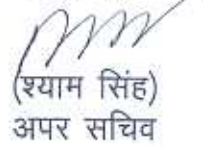 (श्याम सिंह)
अपर सचिव